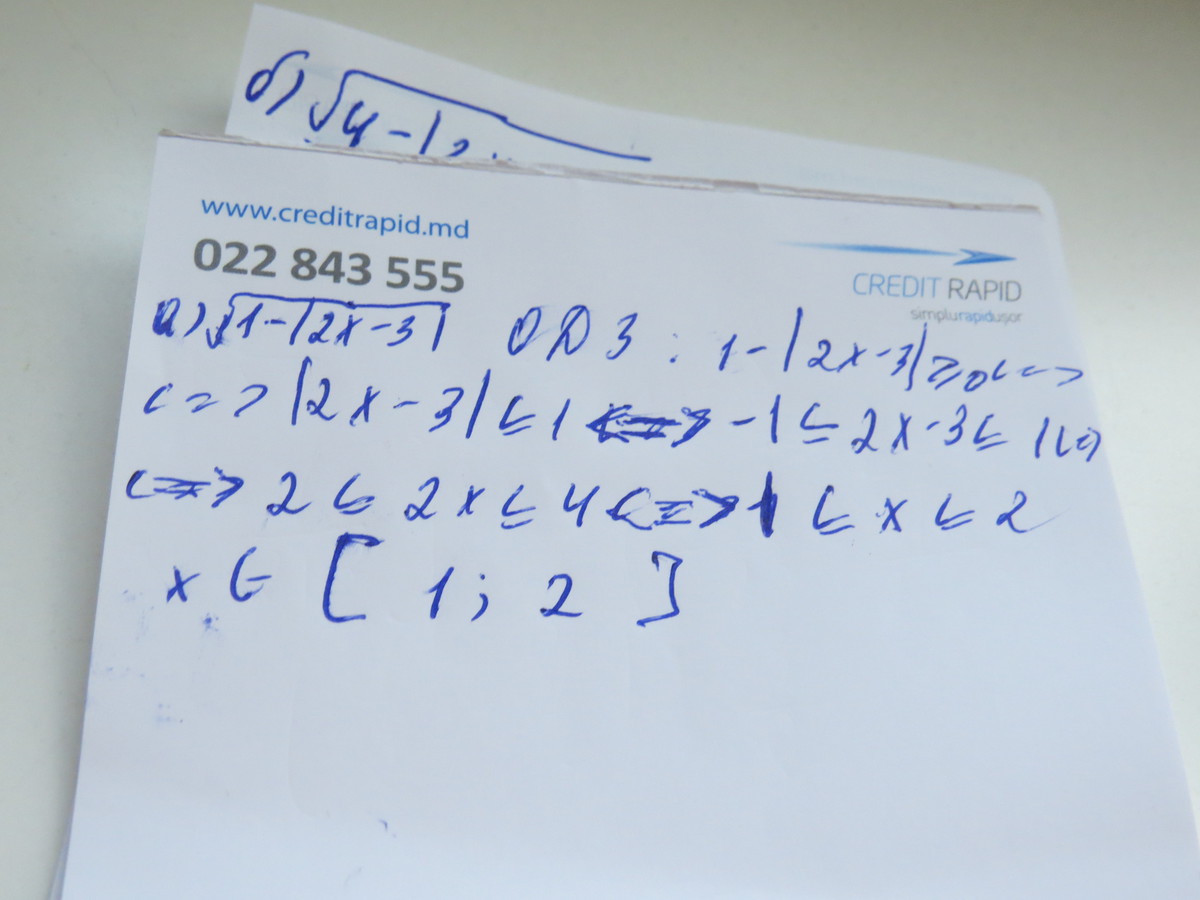 б) √4-|
www.creditrapid.md
022 843 555
CREDIT RAPID
simplurapidușor
а) √1-|2x-3| ОДЗ: 1-|2x-3|≥0<=>
<=> |2x-3|≤1 <=> -1≤2x-3≤1<=>
<=> 2≤2x≤4 <=> 1≤x≤2
x∈[1;2]